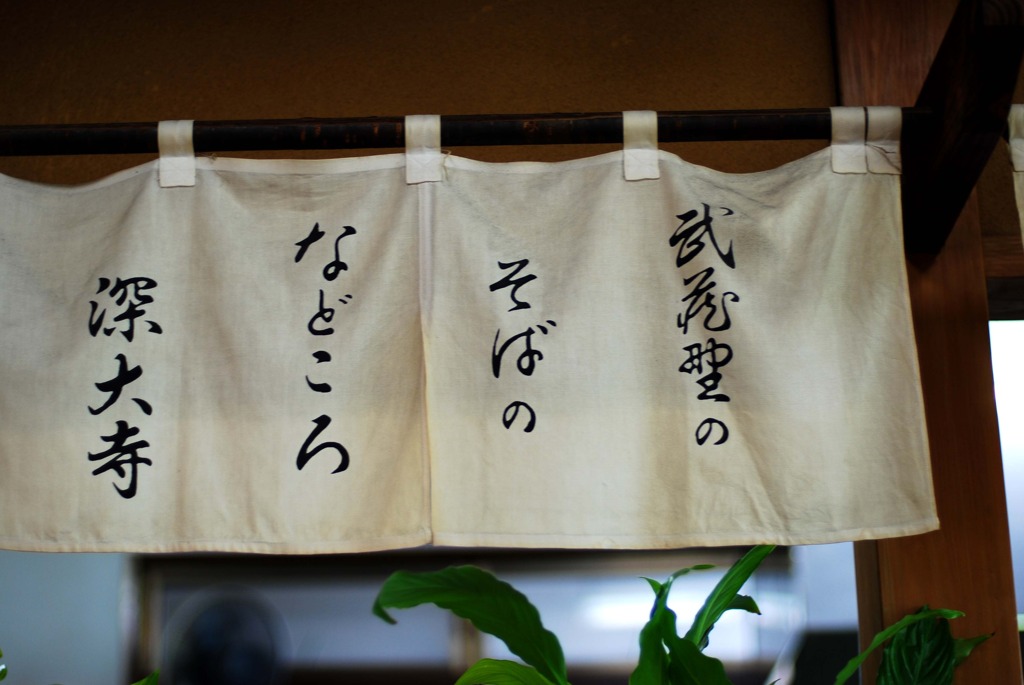 武蔵野の
そばの
などころ
深大寺